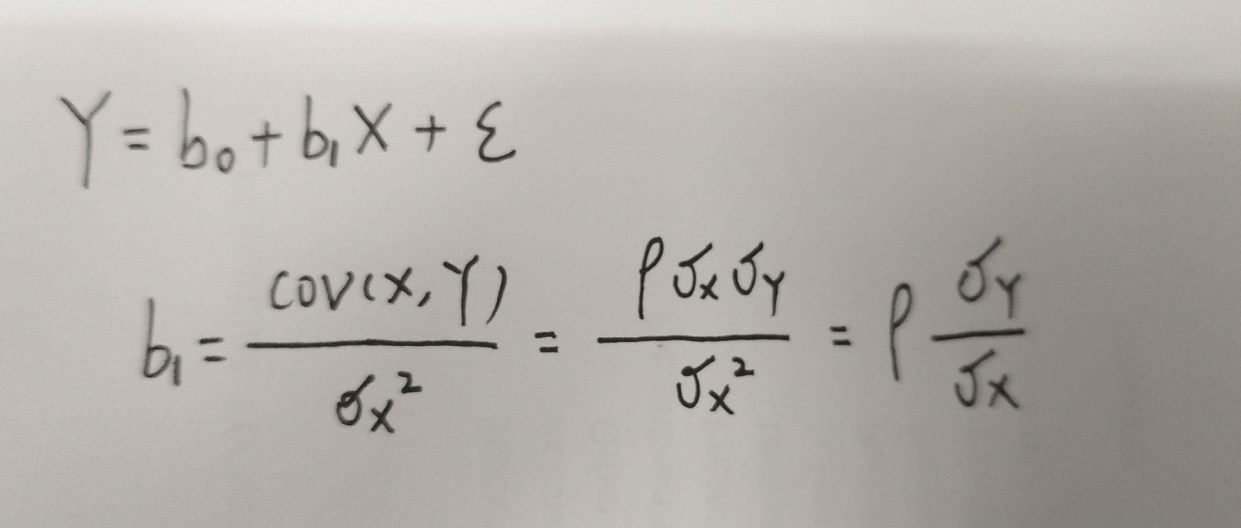 Y = b₀ + b₁X + ε
b₁ = cov(X, Y) / σₓ² = ρσₓσᵧ / σₓ² = ρ σᵧ / σₓ